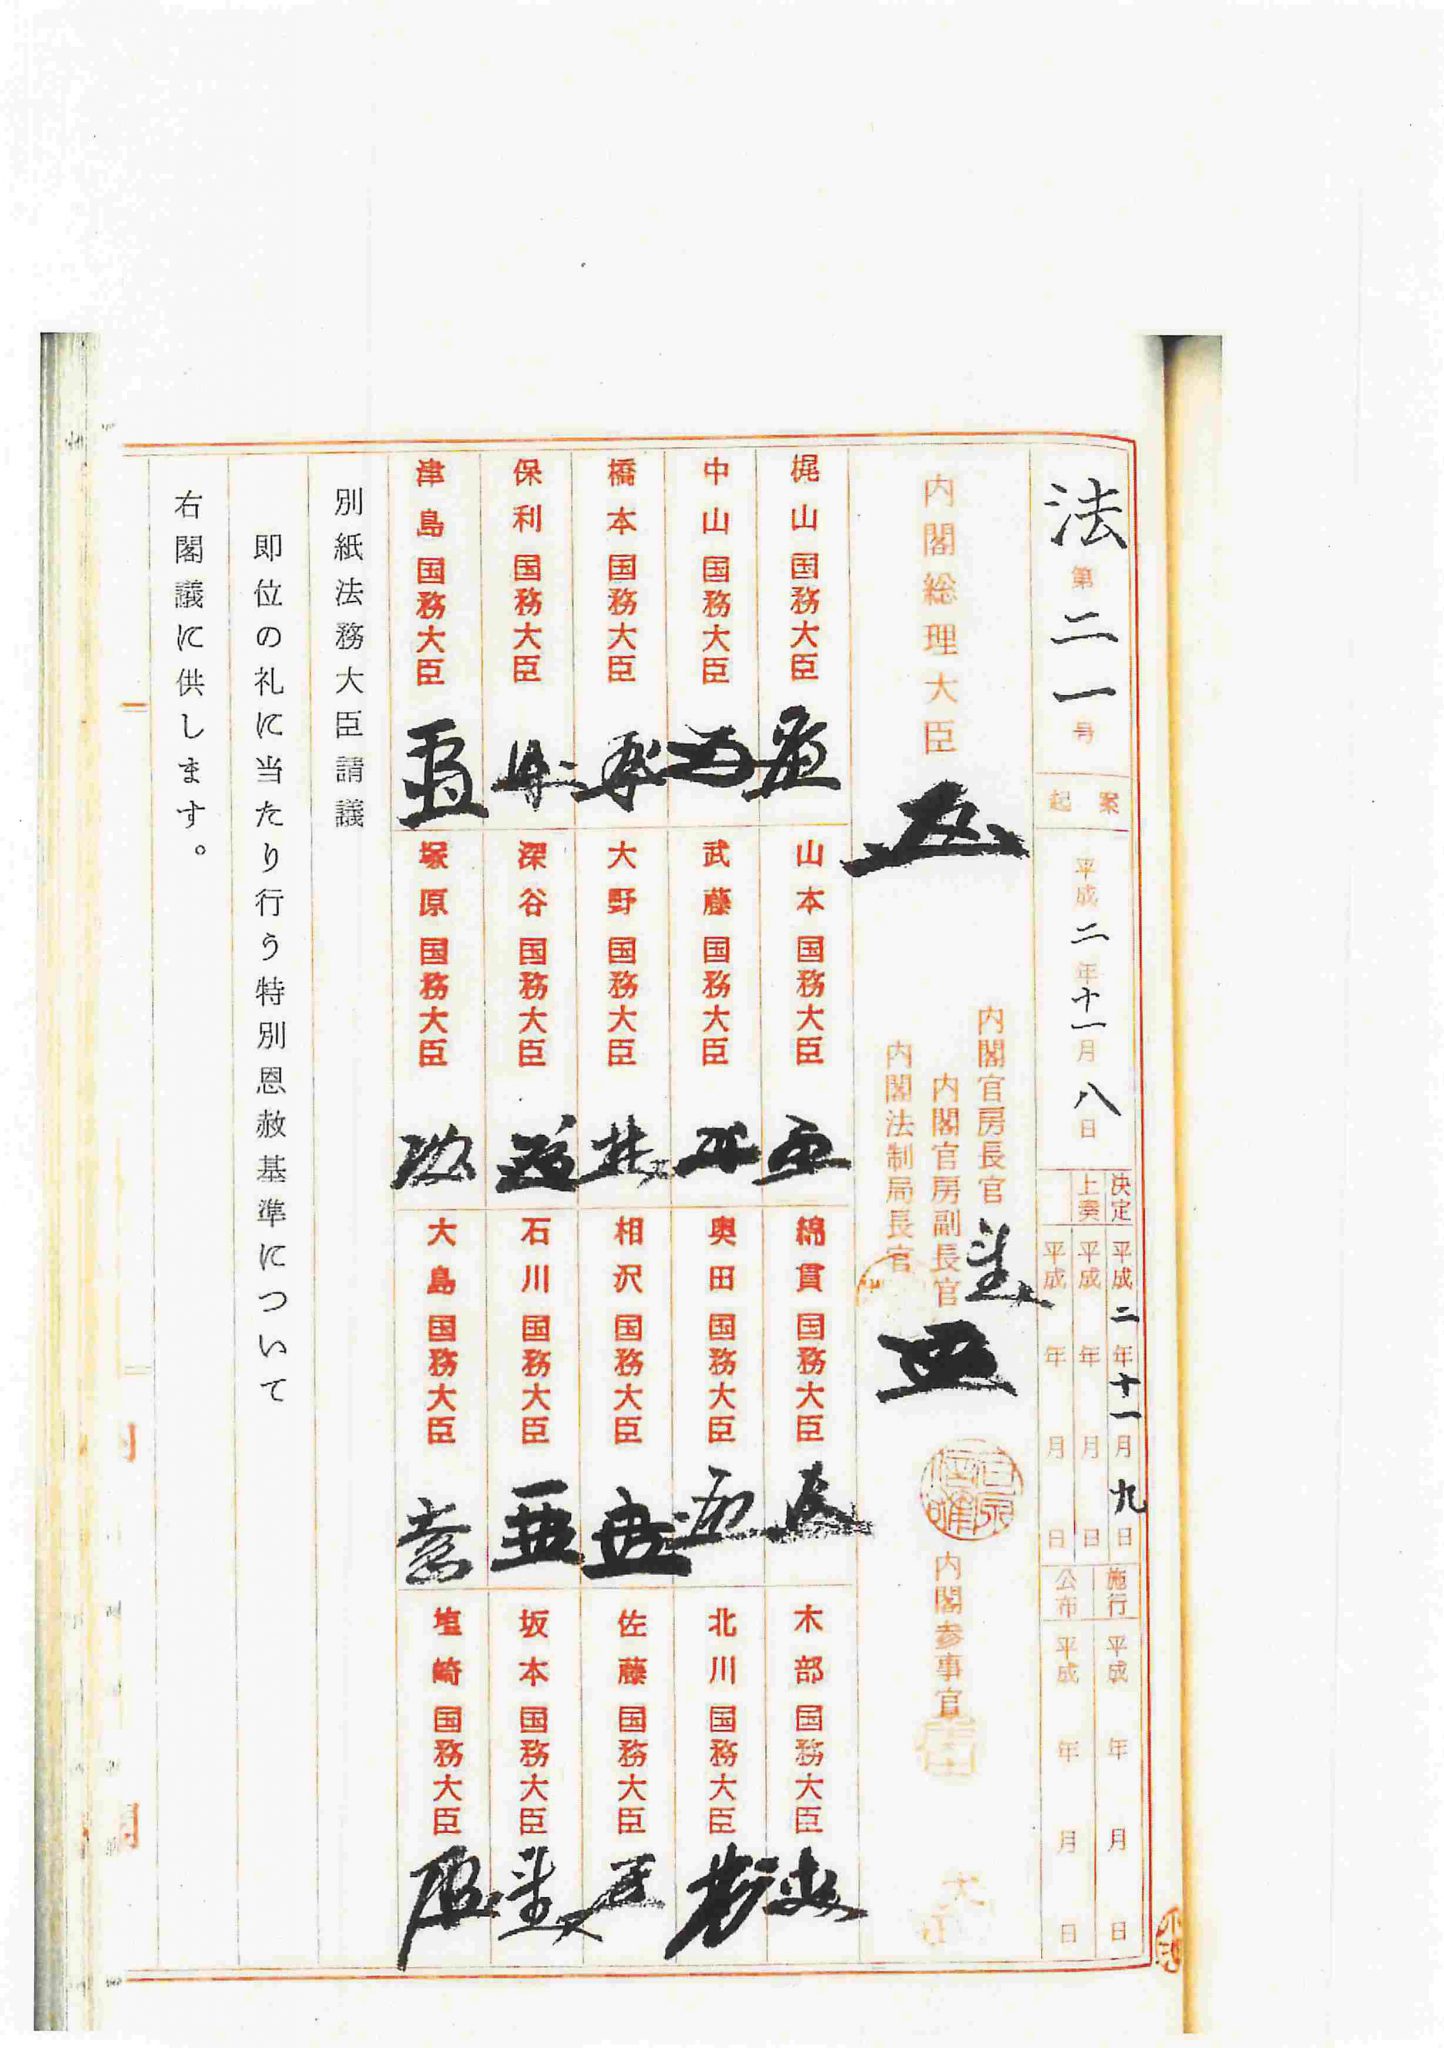 法第二一号
起案
平成二年十一月八日
決定 平成二年十一月九日
上奏 平成 年 月 日
平成 年 月 日
施行 平成 年 月 日
公布 平成 年 月 日
内閣総理大臣
内閣官房長官
内閣官房副長官
内閣法制局長官
内閣参事官
梶山国務大臣
中山国務大臣
橋本国務大臣
保利国務大臣
津島国務大臣
山本国務大臣
武藤国務大臣
大野国務大臣
深谷国務大臣
塚原国務大臣
綿貫国務大臣
奥田国務大臣
相沢国務大臣
石川国務大臣
大島国務大臣
木部国務大臣
北川国務大臣
佐藤国務大臣
坂本国務大臣
塩崎国務大臣
別紙法務大臣請議
即位の礼に当たり行う特別恩赦基準について
右閣議に供します。